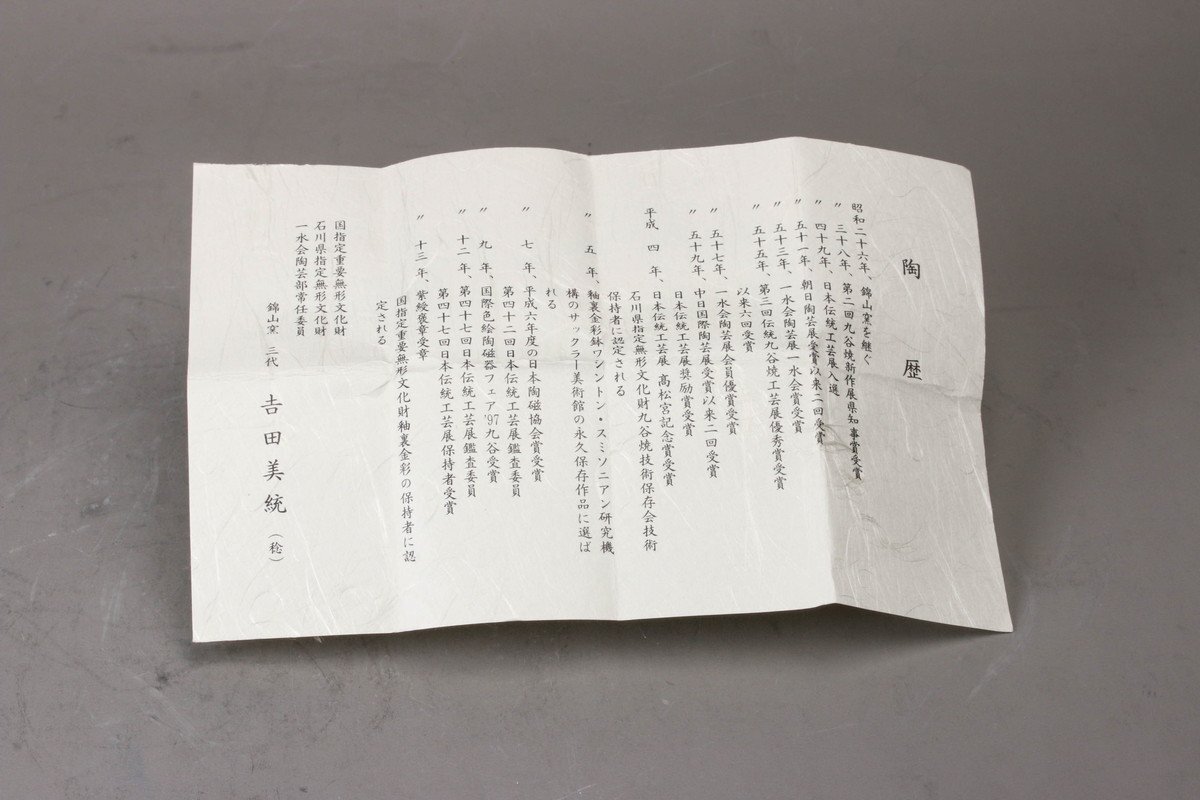 陶歴
昭和二十六年、錦山窯を継ぐ
〃 三十八年、第二回九谷焼新作展県知事賞受賞
〃 四十九年、日本伝統工芸展入選
〃 五十一年、朝日陶芸展受賞以来二回受賞
〃 五十三年、一水会陶芸展一水会賞受賞
〃 五十五年、第三回伝統九谷焼工芸展優秀賞受賞
以来六回受賞
〃 五十七年、一水会陶芸展会員優賞受賞
〃 五十九年、中日国際陶芸展受賞以来二回受賞
日本伝統工芸展奨励賞受賞
平成 四 年、日本伝統工芸展 高松宮記念賞受賞
石川県指定無形文化財九谷焼技術保存会技術
保持者に認定される
〃 五 年、釉裏金彩鉢ワシントン・スミソニアン研究機
構のサックラー美術館の永久保存作品に選ば
れる
〃 七 年、平成六年度の日本陶磁協会賞受賞
第四十二回日本伝統工芸展鑑査委員
〃 九 年、国際色絵陶磁器フェア'97九谷受賞
〃 十二 年、第四十七回日本伝統工芸展鑑査委員
第四十七回日本伝統工芸展保持者受賞
〃 十三 年、紫綬褒章受章
国指定重要無形文化財釉裏金彩の保持者に認
定される
国指定重要無形文化財
石川県指定無形文化財
一水会陶芸部常任委員
錦山窯 三代 吉田美統（稔）